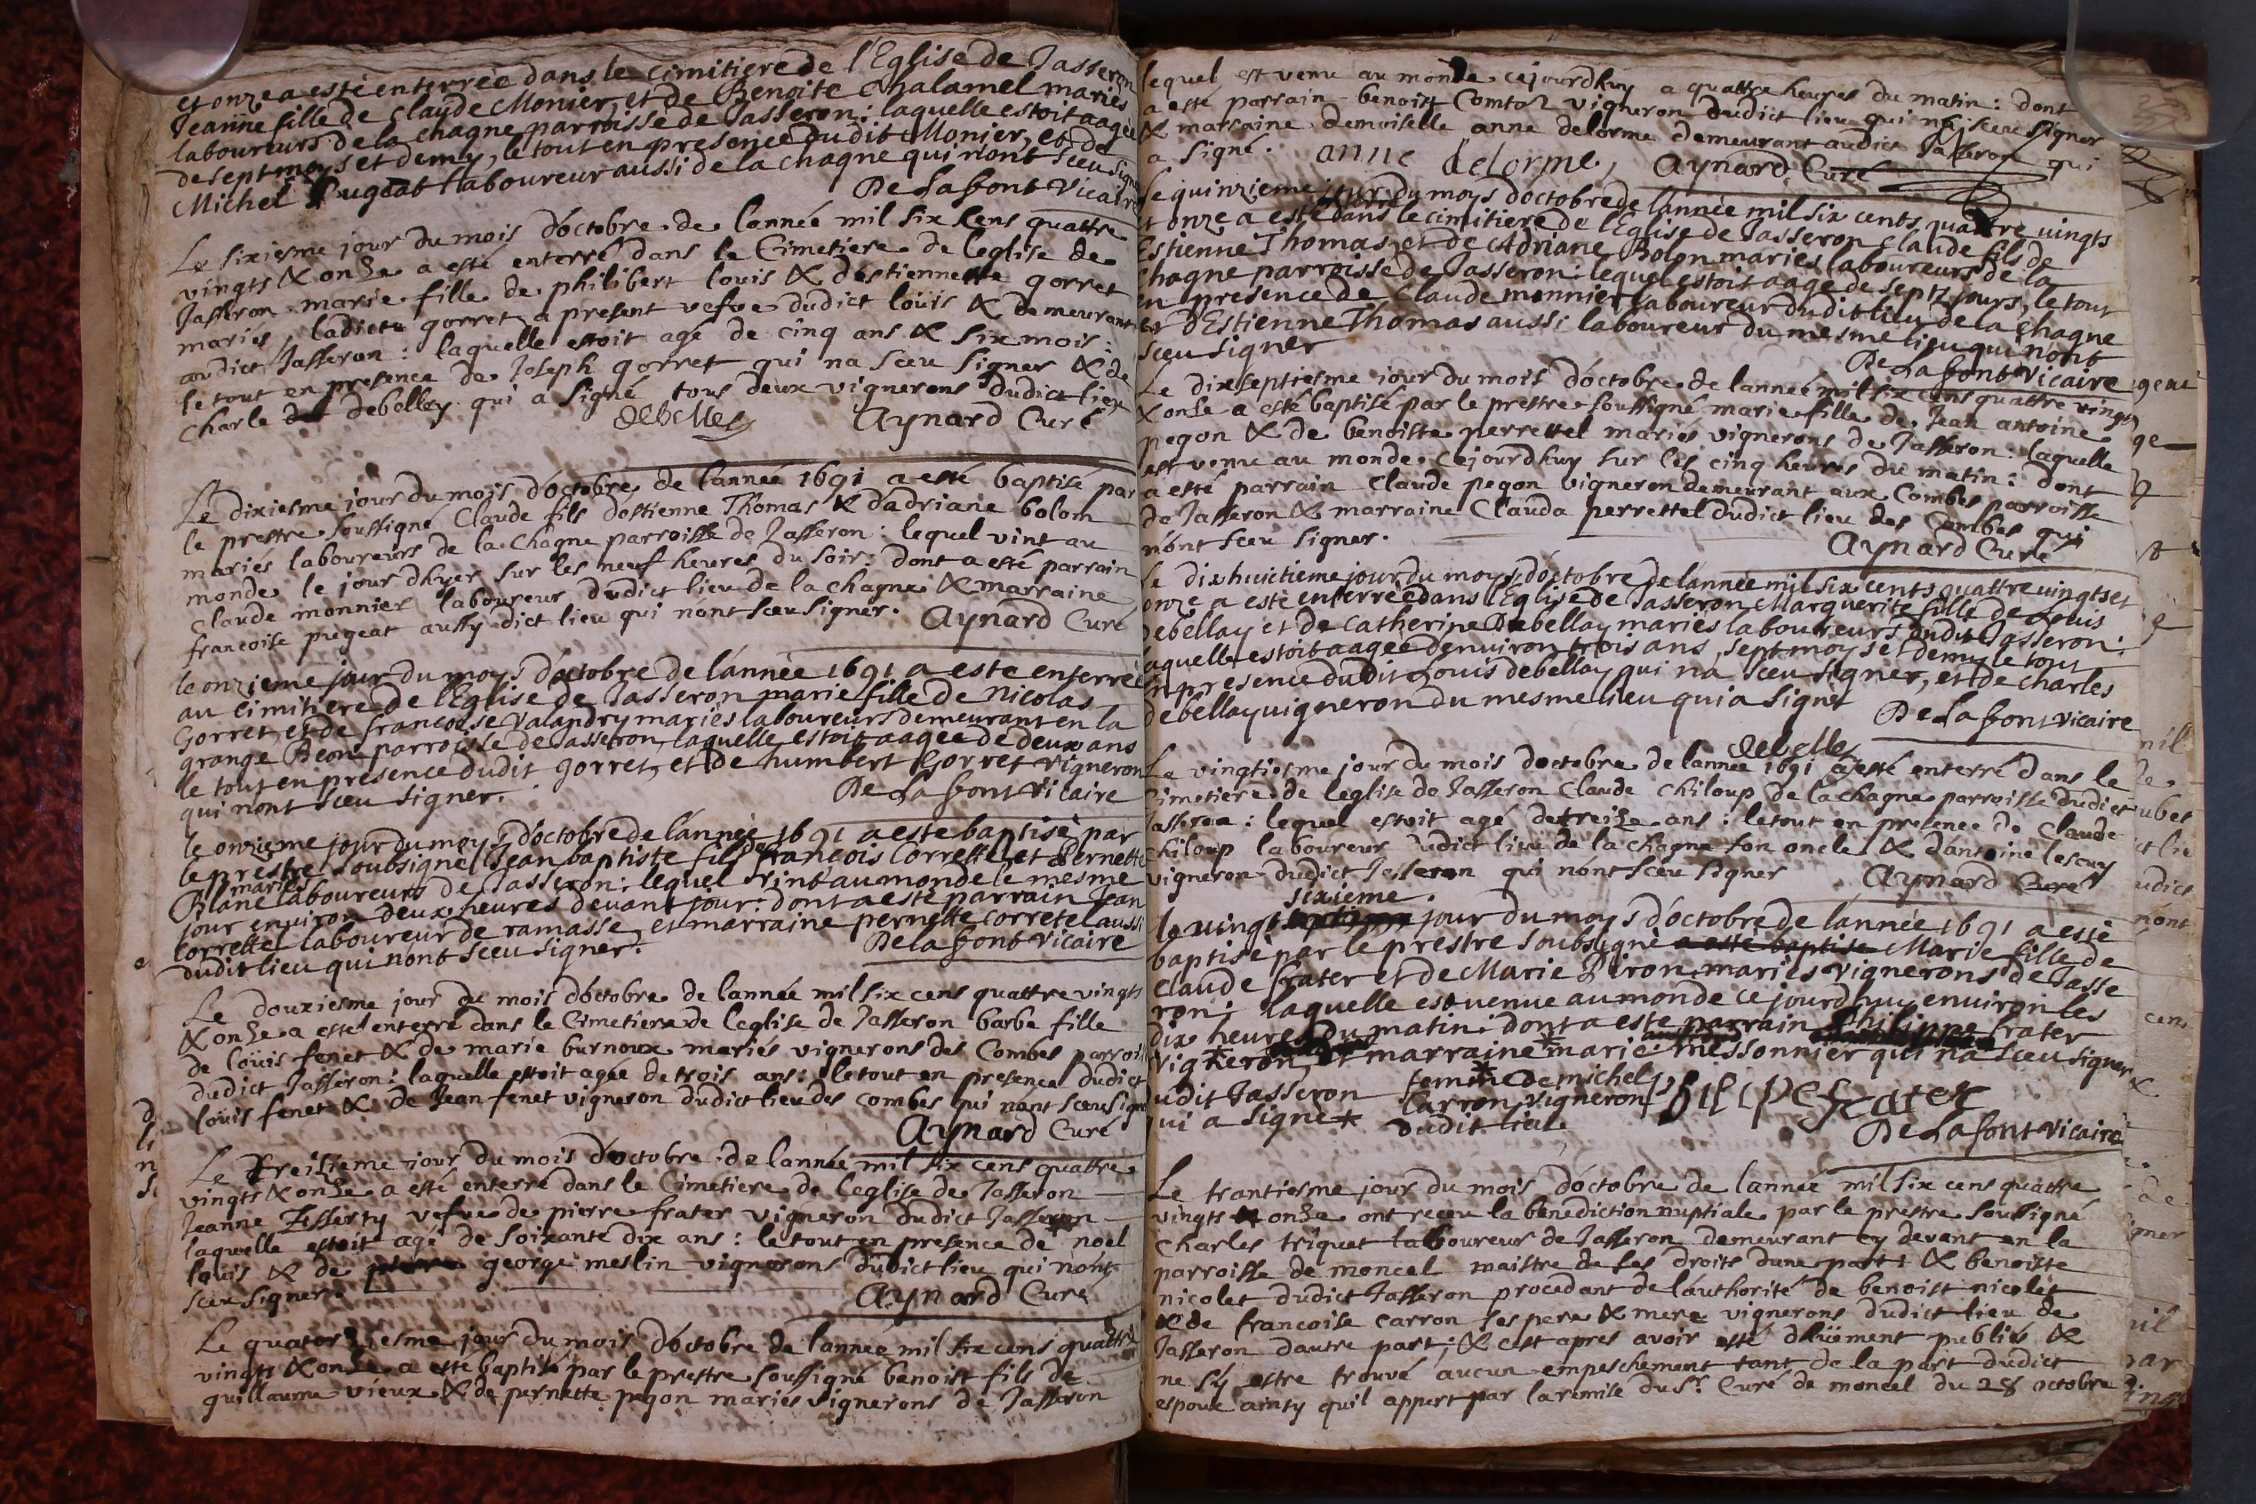 et onze a esté enterrée dans le cimitiere de l'Eglise de Jasseron
Jeanne fille de Claude Monier, et de Benoite Chalamel mariés
laboureurs de la chagne parroisse de Jasseron: laquelle estoit aagée
de sept moys et demy, le tout en presence du dit Monier, et de
Michel Pugeat laboureur aussi de la chagne qui n'ont sceu signer
De Lafont Vicaire
Le sixiesme jour du mois d'octobre de lannée mil six cens quattre
vingts & onze a esté enterré dans le Cimetiere de leglise de
Jasseron marie fille de philibert louis & destiennette gorret
mariés, ladicte gorret a present vefve dudict louis & demeurant
audict Jasseron: laquelle estoit agé de cinq ans & six mois:
le tout en presence de Joseph gorret qui na sceu signer & de
Charle debelley qui a signé tous deux vignerons dudict lieu
debelley Aynard Curé
Le dixiesme jour du mois d'octobre de lannée 1691 a esté baptisé par
le prestre soussigné Claude fils destienne Thomas & dadriane bolom
mariés laboureurs de la Chagne parroisse de Jasseron: lequel vint au
monde le jour dhyer sur les neuf heures du soir: dont a esté parrain
Claude monnier laboureur dudict lieu de la chagne & marraine
francoise pugeat aussy dict lieu qui nont sceu signer. Aynard Curé
le onzieme jour du moys d'octobre de l'année 1691 a esté enterrée
au cimitiere de l'Eglise de Jasseron marie fille de Nicolas
Gorret, et de francoise Valandry mariés laboureurs demeurant en la
grange Beon parroisse de Jasseron, laquelle estoit aagee de deux ans
le tout en presence dudit gorret, et de humbert Gorret vigneron
qui n'ont sceu signer. De Lafont Vicaire
le onzieme jour du moys d'octobre de l'année 1691 a esté baptisé par
le prestre soubsigné Jean baptiste fils de françois Corrette, et Pernette
Blanc mariés laboureurs de Jasseron: lequel vint au monde le mesme
jour environ deux heures devant jour: dont a esté parrain Jean
Correttel laboureur de ramasse, et marraine pernette Corretel aussi
dudit lieu qui n'ont sceu signer. De Lafont Vicaire
Le douxiesme jour du mois d'octobre de lannée mil six cens quattre vingts
& onze a esté enterré dans le Cimetiere de leglise de Jasseron barbe fille
de louis fenet & de marie burnoux mariés vignerons des Combes parroisse
dudict Jasseron: laquelle estoit agée de trois ans: le tout en presence dudict
louis fenet & de Jean fenet vigneron dudict lieu des combes qui nont sceu signer
Aynard Curé
Le treisieme jour du mois d'octobre de lannée mil six cens quattre
vingts & onze a esté enterré dans le Cimetiere de leglise de Jasseron
Jeanne vefve de pierre frater vigneron dudict Jasseron
laquelle estoit agé de soixante dix ans: le tout en presence de noel
louis & de george meslin vignerons dudict lieu qui nont
sceu signer. Aynard Curé
Le quatorziesme jour du mois d'octobre de lannée mil six cens quattre
vingts & onze a esté baptisé par le prestre soussigné benoist fils de
guillaume vieux & de pernette pegon mariés vignerons de Jasseron
lequel est venu au monde cejourdhuy a quattre heures du matin: dont
a esté parrain benoist Comtol vigneron dudict lieu qui na sceu signer
& marraine demoiselle anne delorme demeurant audict Jasseron qui
a signé. anne delorme, Aynard Curé
Le quinzieme jour du moys d'octobre de l'année mil six cents quattre vingts
et onze a esté enterré dans le cimitiere de l'Eglise de Jasseron Claude fils de
Estienne Thomas, et de Adriane Bolon mariés laboureurs de la
Chagne parroisse de Jasseron: lequel estoit aagé de sept jours, le tout
en presence de Claude monnier laboureur dudit lieu de la Chagne
et d'Estienne Thomas aussi laboureur du mesme lieu qui n'ont
sceu signer De Lafont Vicaire
Le dixseptiesme jour du mois d'octobre de lannée mil six cens quattre vingts
& onze a esté baptisé par le prestre soussigné marie fille de Jean antoine
pegon & de benoiste perrettel mariés vignerons de Jasseron: laquelle
est venue au monde cejourdhuy sur les cinq heures du matin: dont
a esté parrain Claude pegon vigneron demeurant aux Combes parroisse
de Jasseron & marraine Clauda perrettel dudict lieu des Combes qui
n'ont sceu signer. Aynard Curé
Le dixhuictieme jour du moys d'octobre de l'année mil six cents quattre vingts et
onze a esté enterrée dans l'Eglise de Jasseron Marguerite fille de Louis
Debellay et de Catherine Debellay mariés laboureurs dudit Jasseron:
laquelle estoit aagée denviron trois ans, sept moys et demy le tout
en presence dudit Louis debellay qui na sceu signer, et de Charles
debellay vigneron du mesme lieu qui a signé
De Lafont Vicaire
debelley
Le vingtiesme jour du mois doctobre de lannée 1691 a esté enterré dans le
Cimetiere de leglise de Jasseron Claude Chiloup de la chagne parroisse dudict
Jasseron: lequel estoit agé de treize ans: le tout en presence de Claude
Chiloup laboureur dudict lieu de la chagne son oncle & dantoine lescuy
vigneron dudict Jasseron qui n'ont sceu signer Aynard Curé
sixieme
le vingt jour du moys d'octobre de l'année 1691 a esté
baptisé par le prestre soubsigné a esté baptisé Marie fille de
Claude frater et de Marie Piron mariés vignerons de Jasse
ron: laquelle est venue au monde ce jourd'huy environ les
dix heures du matin: dont a esté parrain Philippe frater
vigneron, et marraine* marie messonnier qui na sceu signer
udit Jasseron femme de michel philipe frater
qui a signé* Carron vigneron
dudit lieu
De Lafont Vicaire
Le trantiesme jour du mois d'octobre de lannée mil six cens quattre
vingts & onze ont receu la benediction nuptiale par le prestre soussigné
Charles triquet laboureur de Jasseron demeurant cy devant en la
parroisse de moncel maistre de ses droits dune part: & benoiste
nicolet dudict Jasseron procedant de lauthorité de benoist nicolet
& de francoise carron ses pere & mere vignerons dudict lieu de
Jasseron dautre part; & cest apres avoir esté düement publiés &
ne sy estre trouvé aucun empeschement tant de la part dudict
espoux ainsy quil appert par la remise du Sr. Curé de moncel du 28 octobre